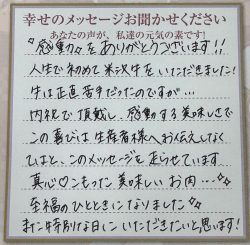 幸せのメッセージお聞かせください
あなたの声が、私達の元気の素です!
"感動々をありがとうございます!!
人生で初めて米沢牛をいただきました!
牛は正直苦手だったのですが…
内祝で頂戴し、感動する美味しさで
この喜びは生産者様へお伝えしなく
てはと、このメッセージを走らせています
真心♡こもった美味しいお肉…✧
至福のひとときになりました✧
また特別な日にいただきたいと思います!